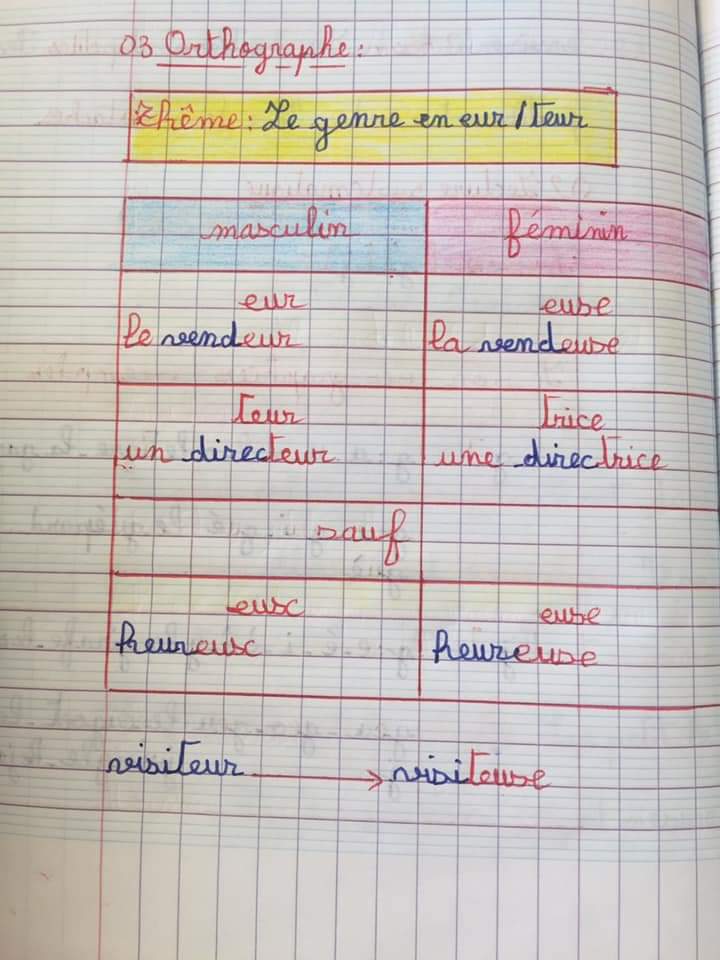 03 Orthographe:
Thême: Le genre en eur/teur
masculin féminin
eur euse
le vendeur la vendeuse
teur trice
un directeur une directrice
sauf
eux euse
heureux heureuse
visiteur → visiteuse